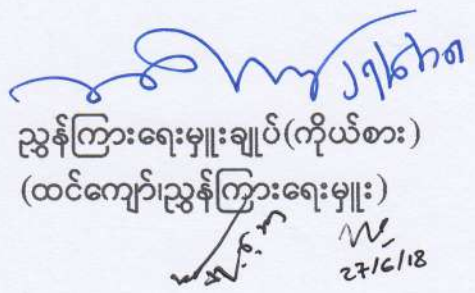 ၂၇/၆/၁၈
ညွှန်ကြားရေးမှူးချုပ်(ကိုယ်စား)
(ထင်ကျော်၊ညွှန်ကြားရေးမှူး)
27/6/18